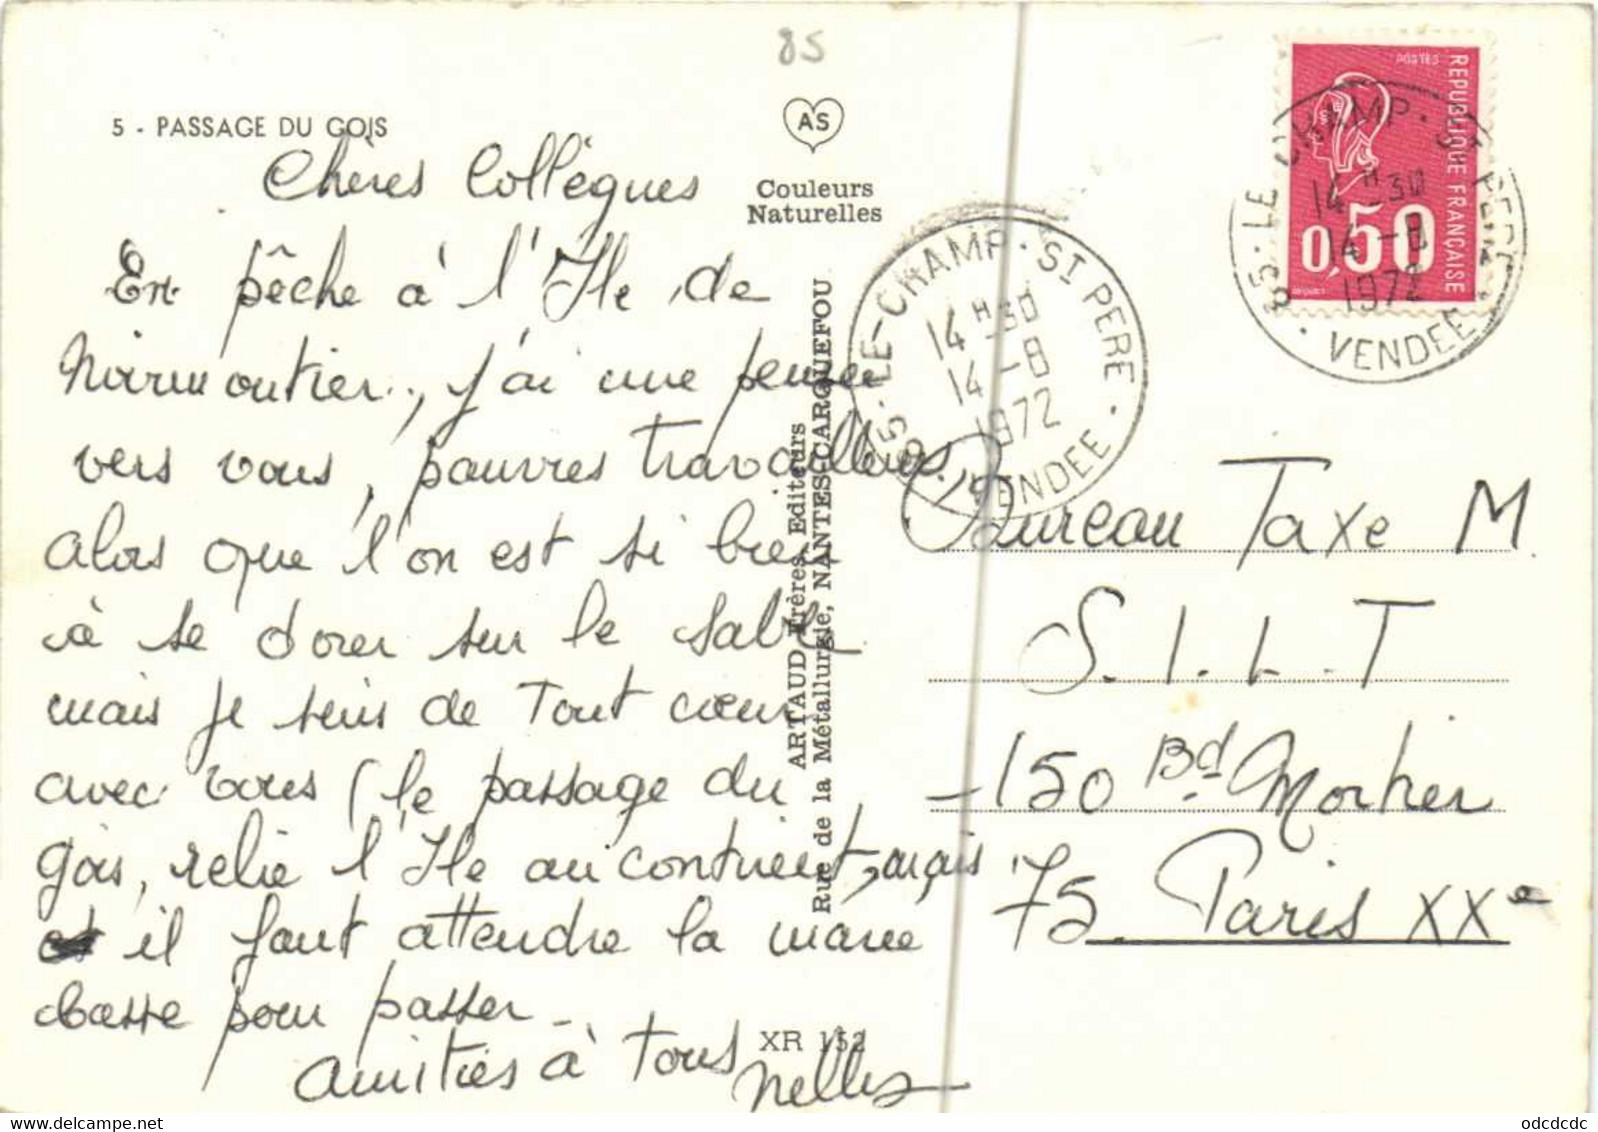 85
5 - PASSAGE DU GOIS
AS
Couleurs
Naturelles
Chères Collègues
En pêche à l'Ile de
Noirmoutier, j'ai une pensée
vers vous, pauvres travailleurs,
alors que l'on est si bien
à se dorer sur le sable
mais je suis de tout cœur
avec vous (le passage du
gois, relie l'Ile au continent, mais
il faut attendre la marée
basse pour passer_
Amitiés à Tous
ARTAUD Frères, Editeurs
Rue de la Métallurgie, NANTES-CARQUEFOU
XR 152
85 · LE-CHAMP · ST PERE · VENDEE ·
14 H 30
14 - 8
1972
POSTES
REPUBLIQUE FRANÇAISE
0,50
85 · LE CHAMP · ST PERE · VENDEE
14 H 30
14 - 8
1972
Bureau Taxe M.
S.I.L.T
- 150 Bd Mortier
75. Paris XXe
odcdcdc